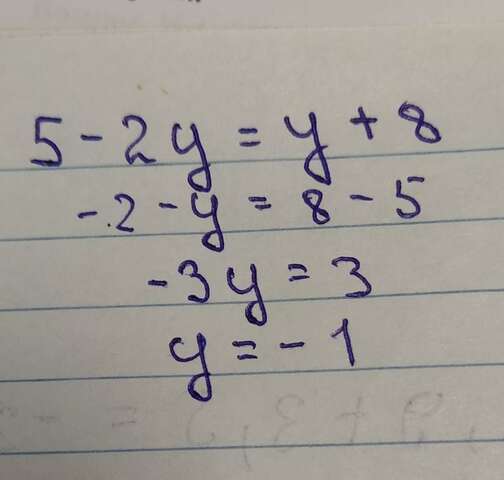 5 - 2y = y + 8
-2 - y = 8 - 5
-3y = 3
y = -1